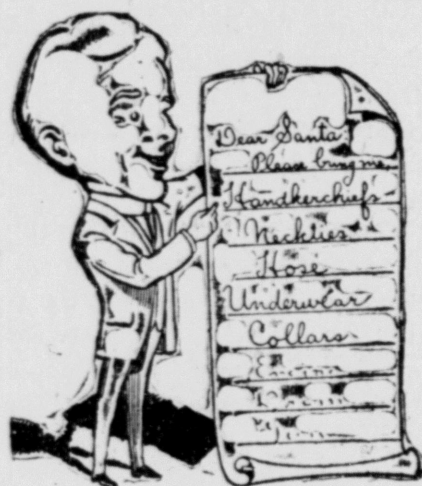 Dear Santa
Please bring me
Handkerchiefs
Neckties
Hose
Underwear
Collars